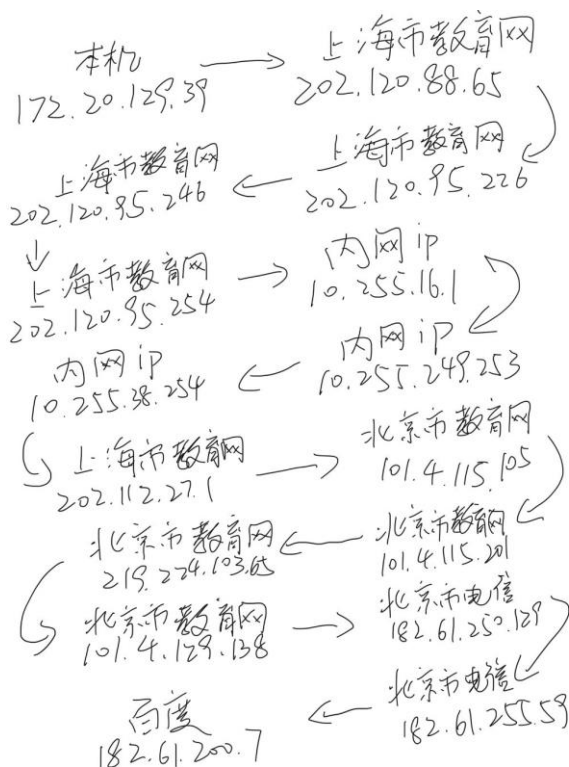 本机
172.20.129.39
上海市教育网
202.120.88.65
上海市教育网
202.120.95.226
上海市教育网
202.120.95.246
上海市教育网
202.120.95.254
内网ip
10.255.16.1
内网ip
10.255.249.253
内网ip
10.255.38.254
上海市教育网
202.112.27.1
北京市教育网
101.4.115.105
北京市教育网
101.4.115.201
北京市教育网
219.224.103.65
北京市教育网
101.4.129.138
北京市电信
182.61.250.129
北京市电信
182.61.255.59
百度
182.61.200.7